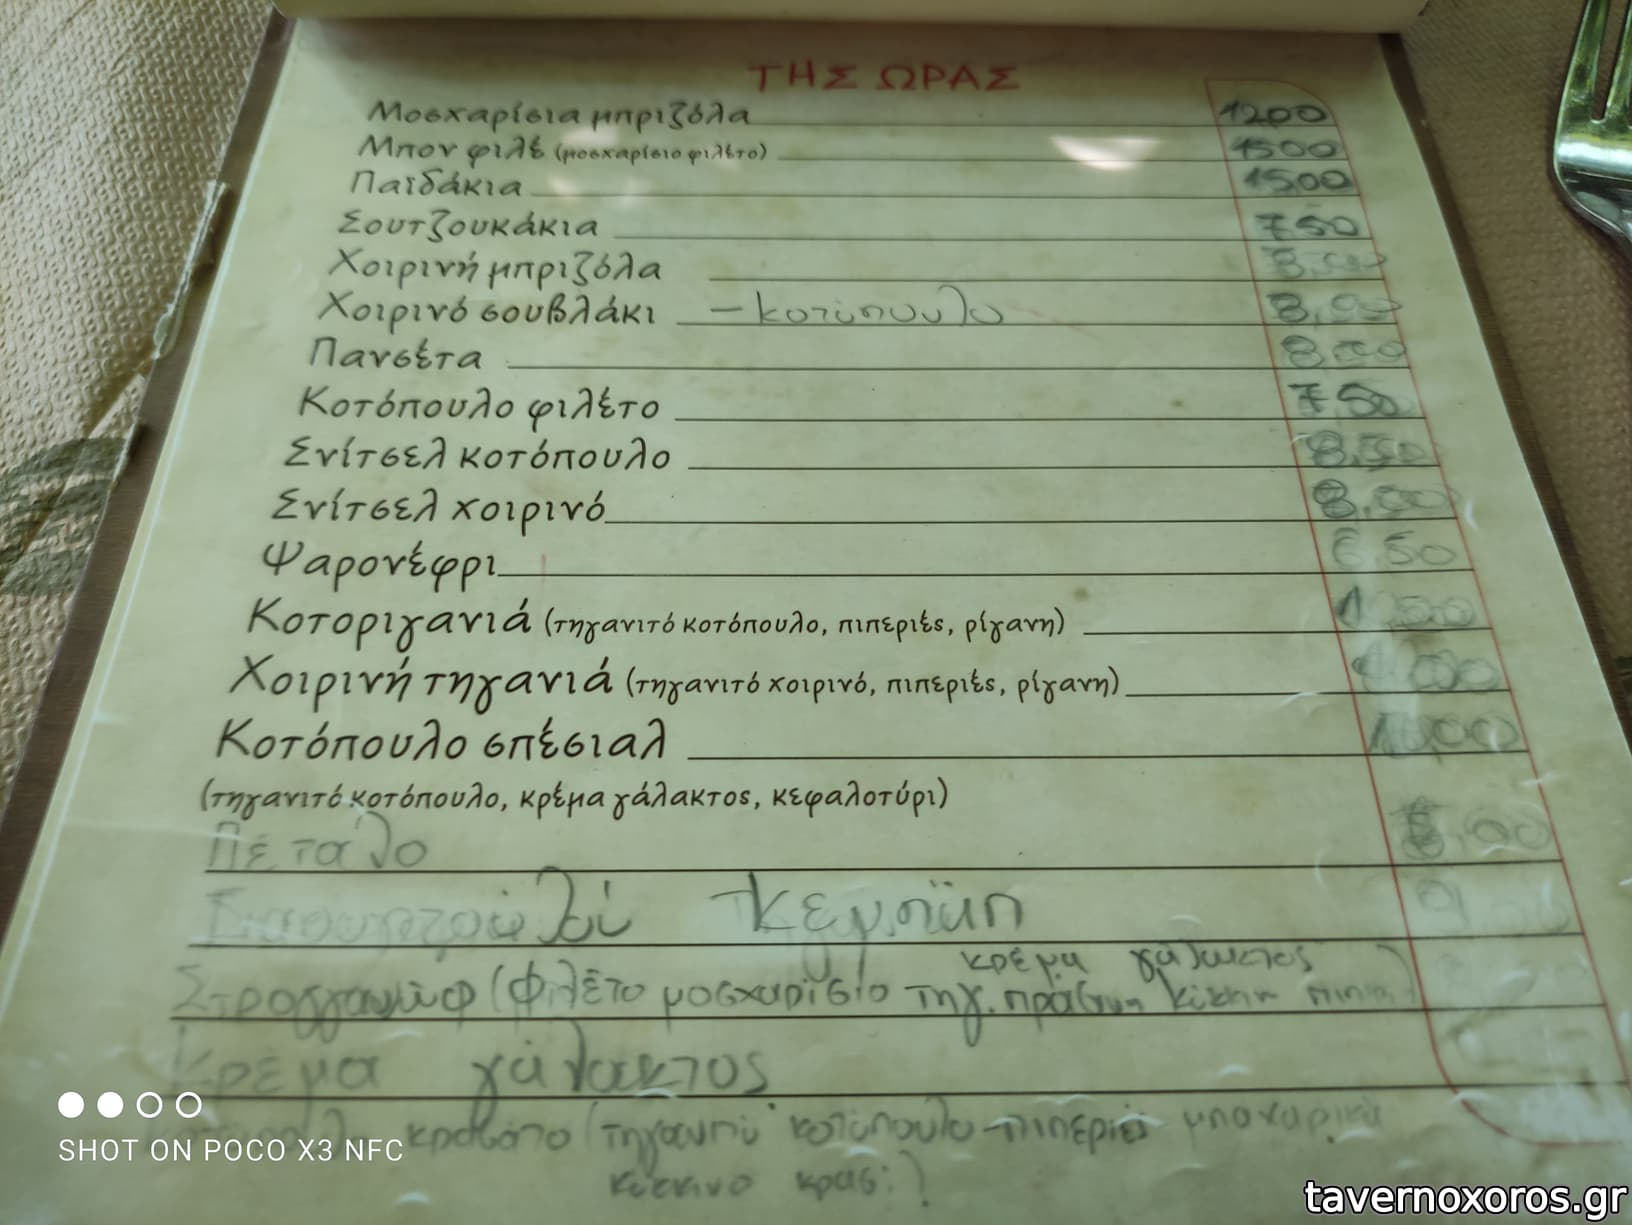 ΤΗΣ ΩΡΑΣ
Μοσχαρίσια μπριζόλα 1200
Μπον φιλέ (μοσχαρίσιο φιλέτο) 1500
Παϊδάκια 1500
Σουτζουκάκια 750
Χοιρινή μπριζόλα
Χοιρινό σουβλάκι - κοτόπουλο 8,00
Πανσέτα 8,00
Κοτόπουλο φιλέτο 7 50
Σνίτσελ κοτόπουλο 8,50
Σνίτσελ χοιρινό 8,00
Ψαρονέφρι 6 50
Κοτοριγανιά (τηγανιτό κοτόπουλο, πιπεριές, ρίγανη)
Χοιρινή τηγανιά (τηγανιτό χοιρινό, πιπεριές, ρίγανη)
Κοτόπουλο σπέσιαλ 10,00
(τηγανιτό κοτόπουλο, κρέμα γάλακτος, κεφαλοτύρι)
Πέταλο
κρέμα γάλακτος
(φιλέτο μοσχαρίσιο τηγ.
Κρέμα γάλακτος
κρασάτο κοτόπουλο - πιπεριές μπαχαρικά
κόκκινο κρασί)
SHOT ON POCO X3 NFC
tavernoxoros.gr